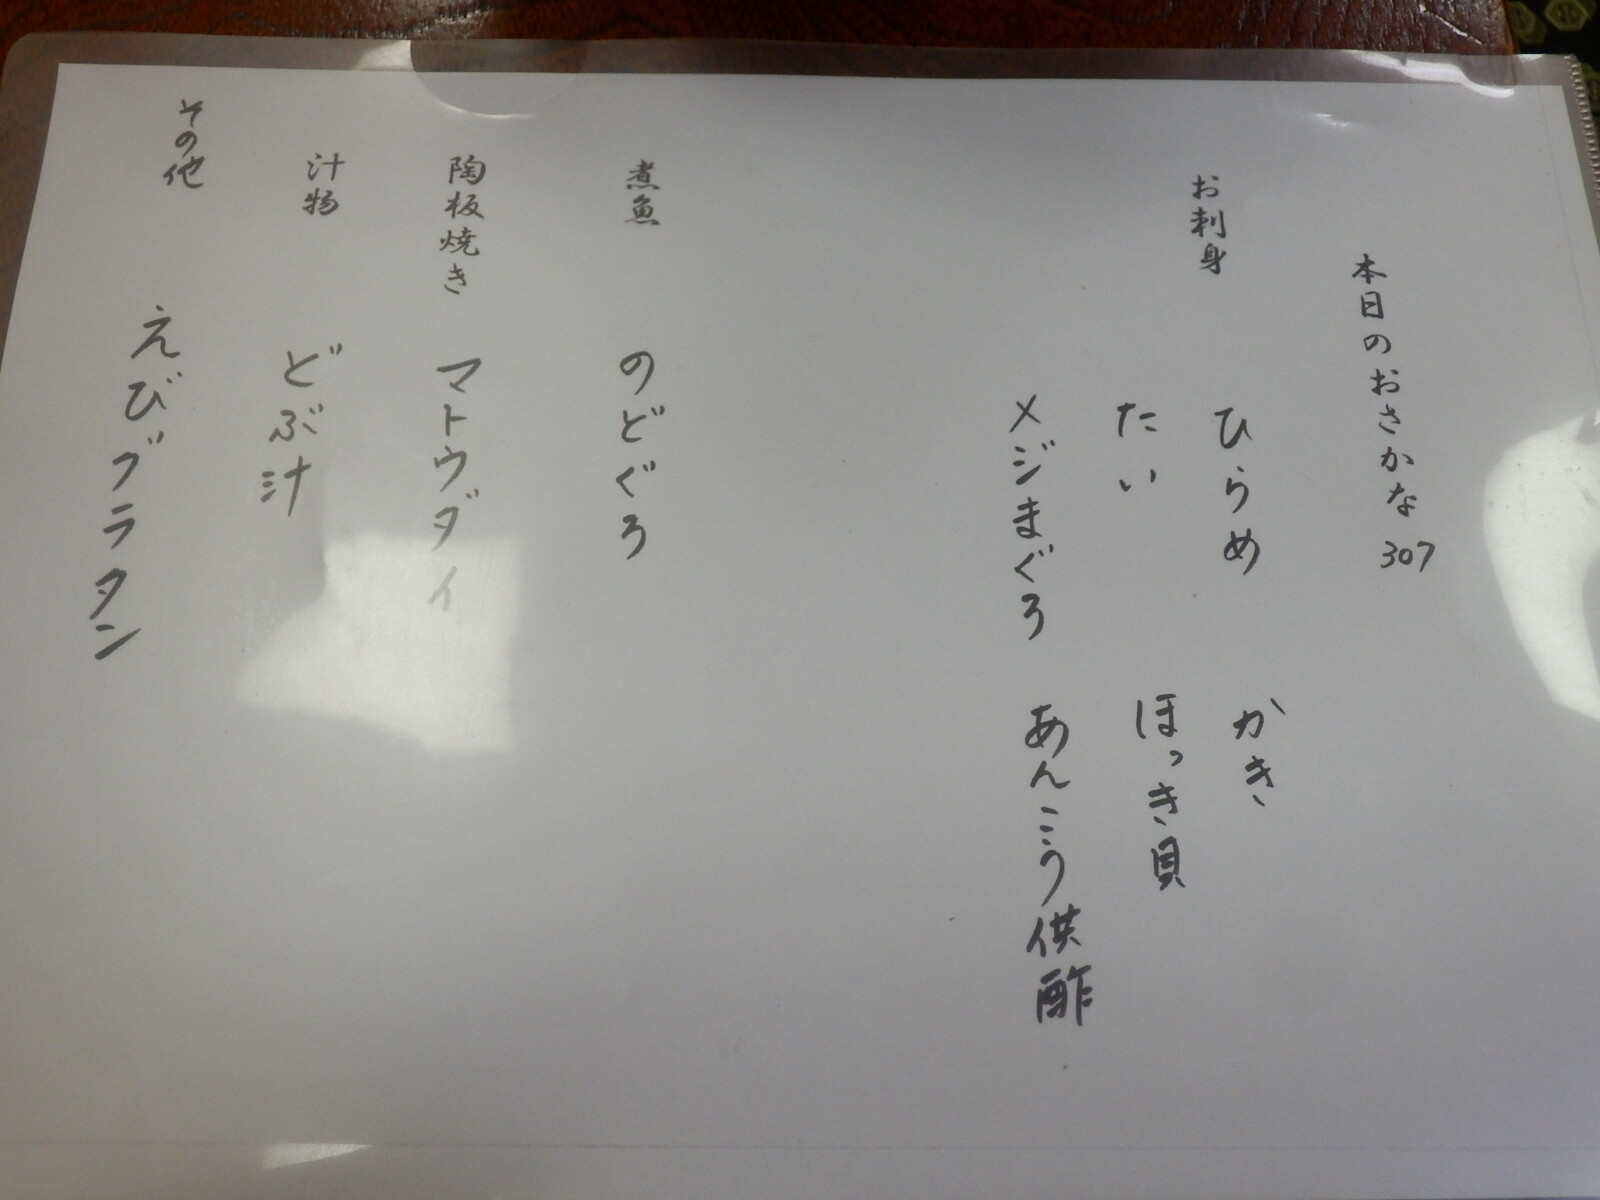 本日のおさかな 307
お刺身
ひらめ かき
たい ほっき貝
メジまぐろ あんこう供酢
煮魚 のどぐろ
陶板焼き マトウダイ
汁物 どぶ汁
その他 えびグラタン